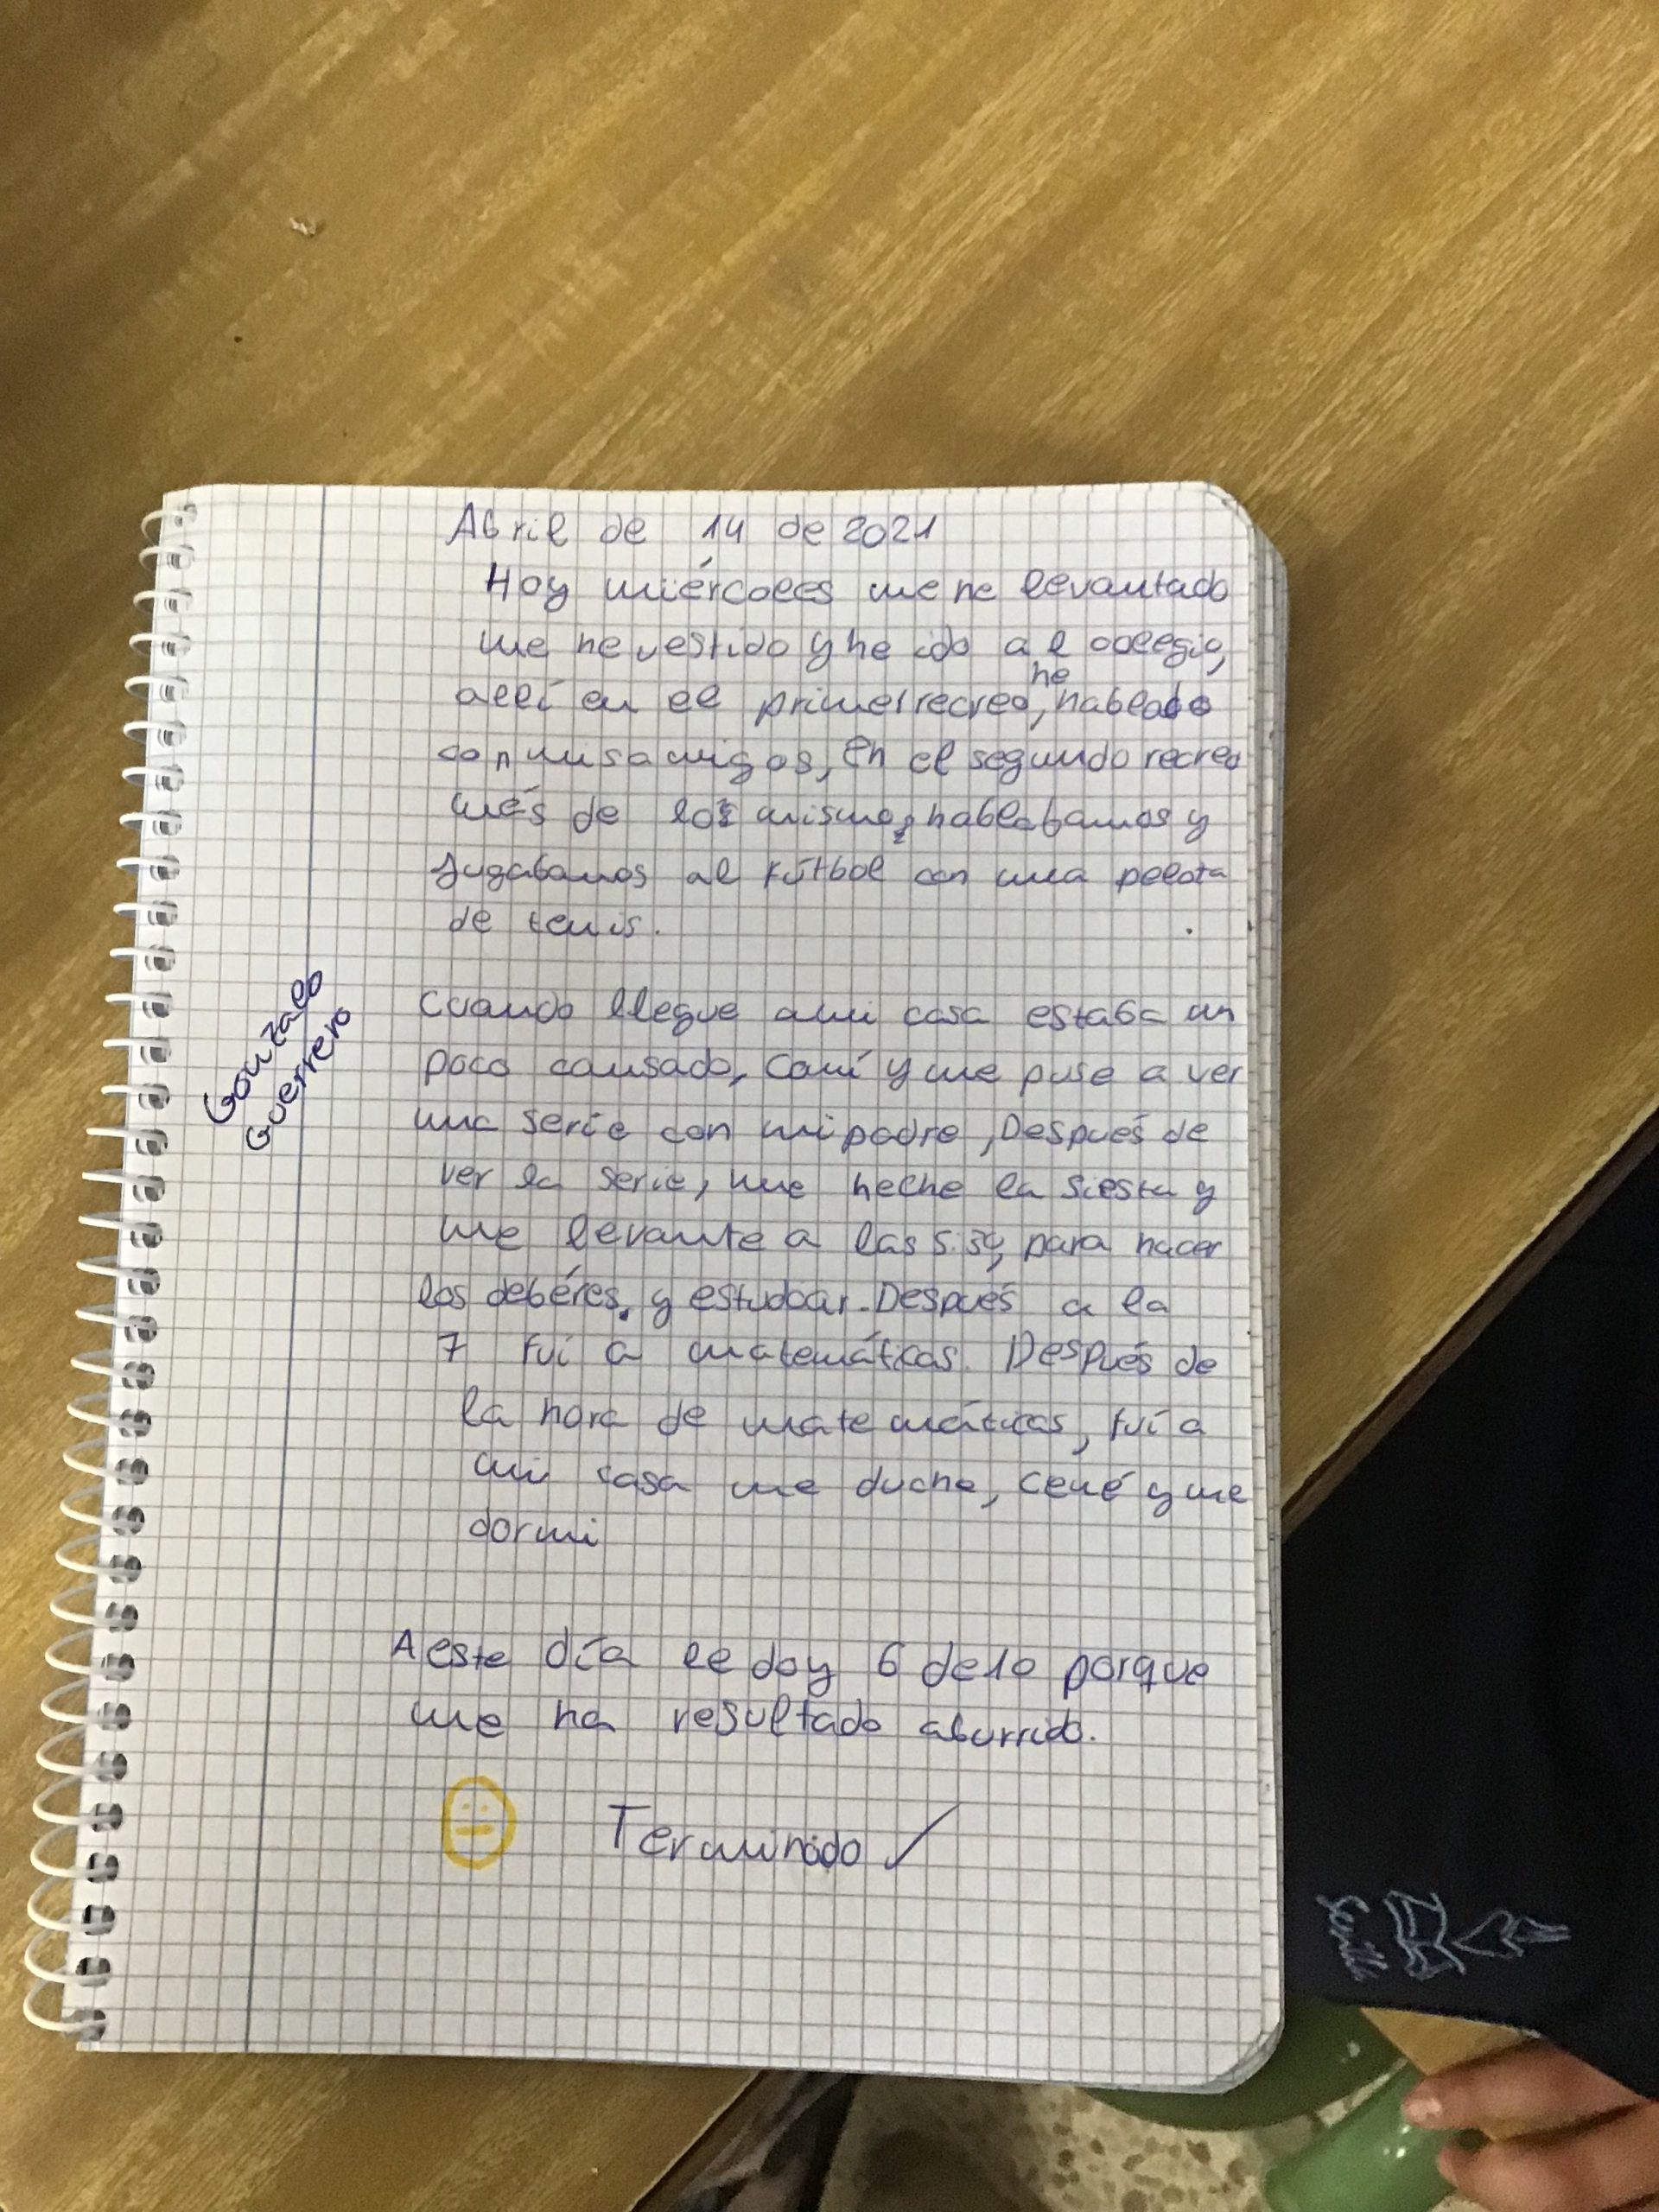 Abril de 14 de 2021
Hoy miércoles me he levantado
me he vestido y he ido al colegio,
he
allí en el primer recreo, hablado
con mis amigos, En el segundo recreo
més de los mismo, hablabamos y
Jugabamos al fútbol con una pelota
de tenis.
Cuando llegue a mi casa estaba un
poco cansado, Comí y me puse a ver
una serie con mi padre, Después de
ver la serie, me heche la siesta y
me levante a las 5:30, para hacer
los debéres. y estudoar. Después a la
7 fuí a matemáticas. Después de
la hora de matemáticas, fuí a
mi casa me duche, Cené y me
dormi
Gonzalo
Guerrero
A este día le doy 6 de 10 porque
me ha resultado aburrido.
Terminado ✓